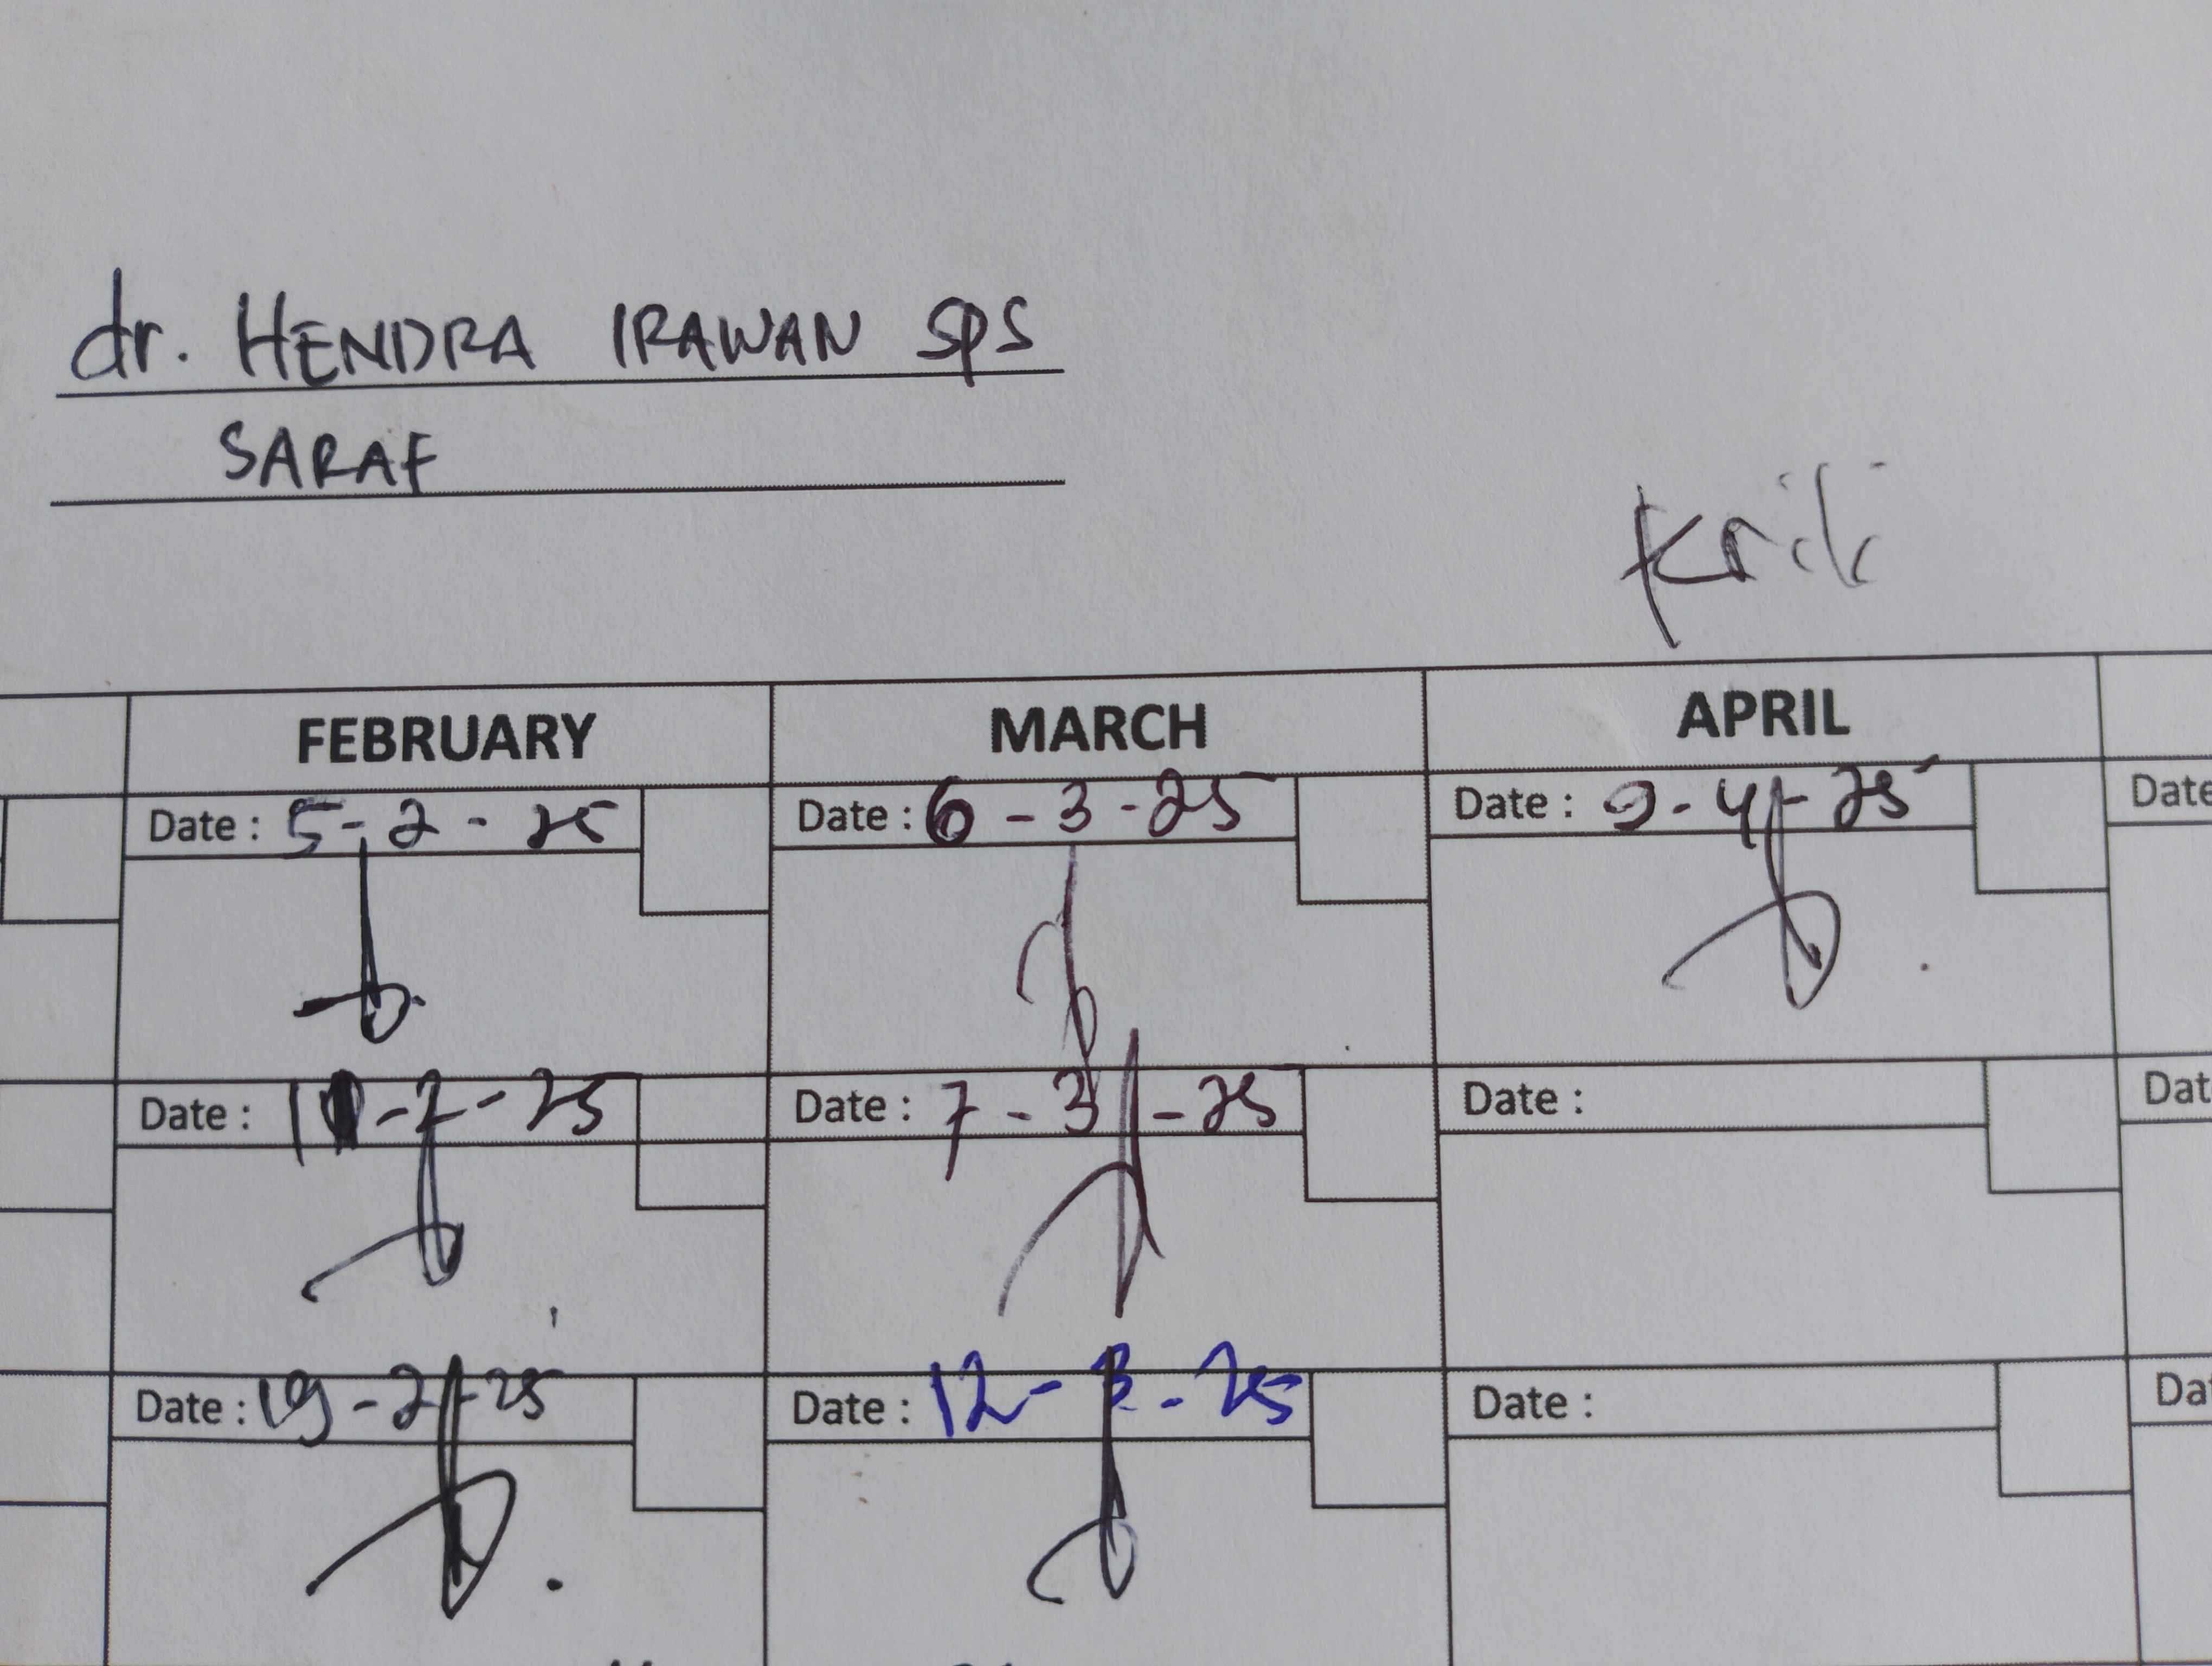 dr. HENDRA IRAWAN SPS
SARAF
Krit
FEBRUARY MARCH APRIL
Date : 5-2-25 Date : 6-3-25 Date : 9-4-25 Date
Date : -2-25 Date : 7-3-25 Date : Dat
Date : 19-2-25 Date : 12-3-25 Date : Da